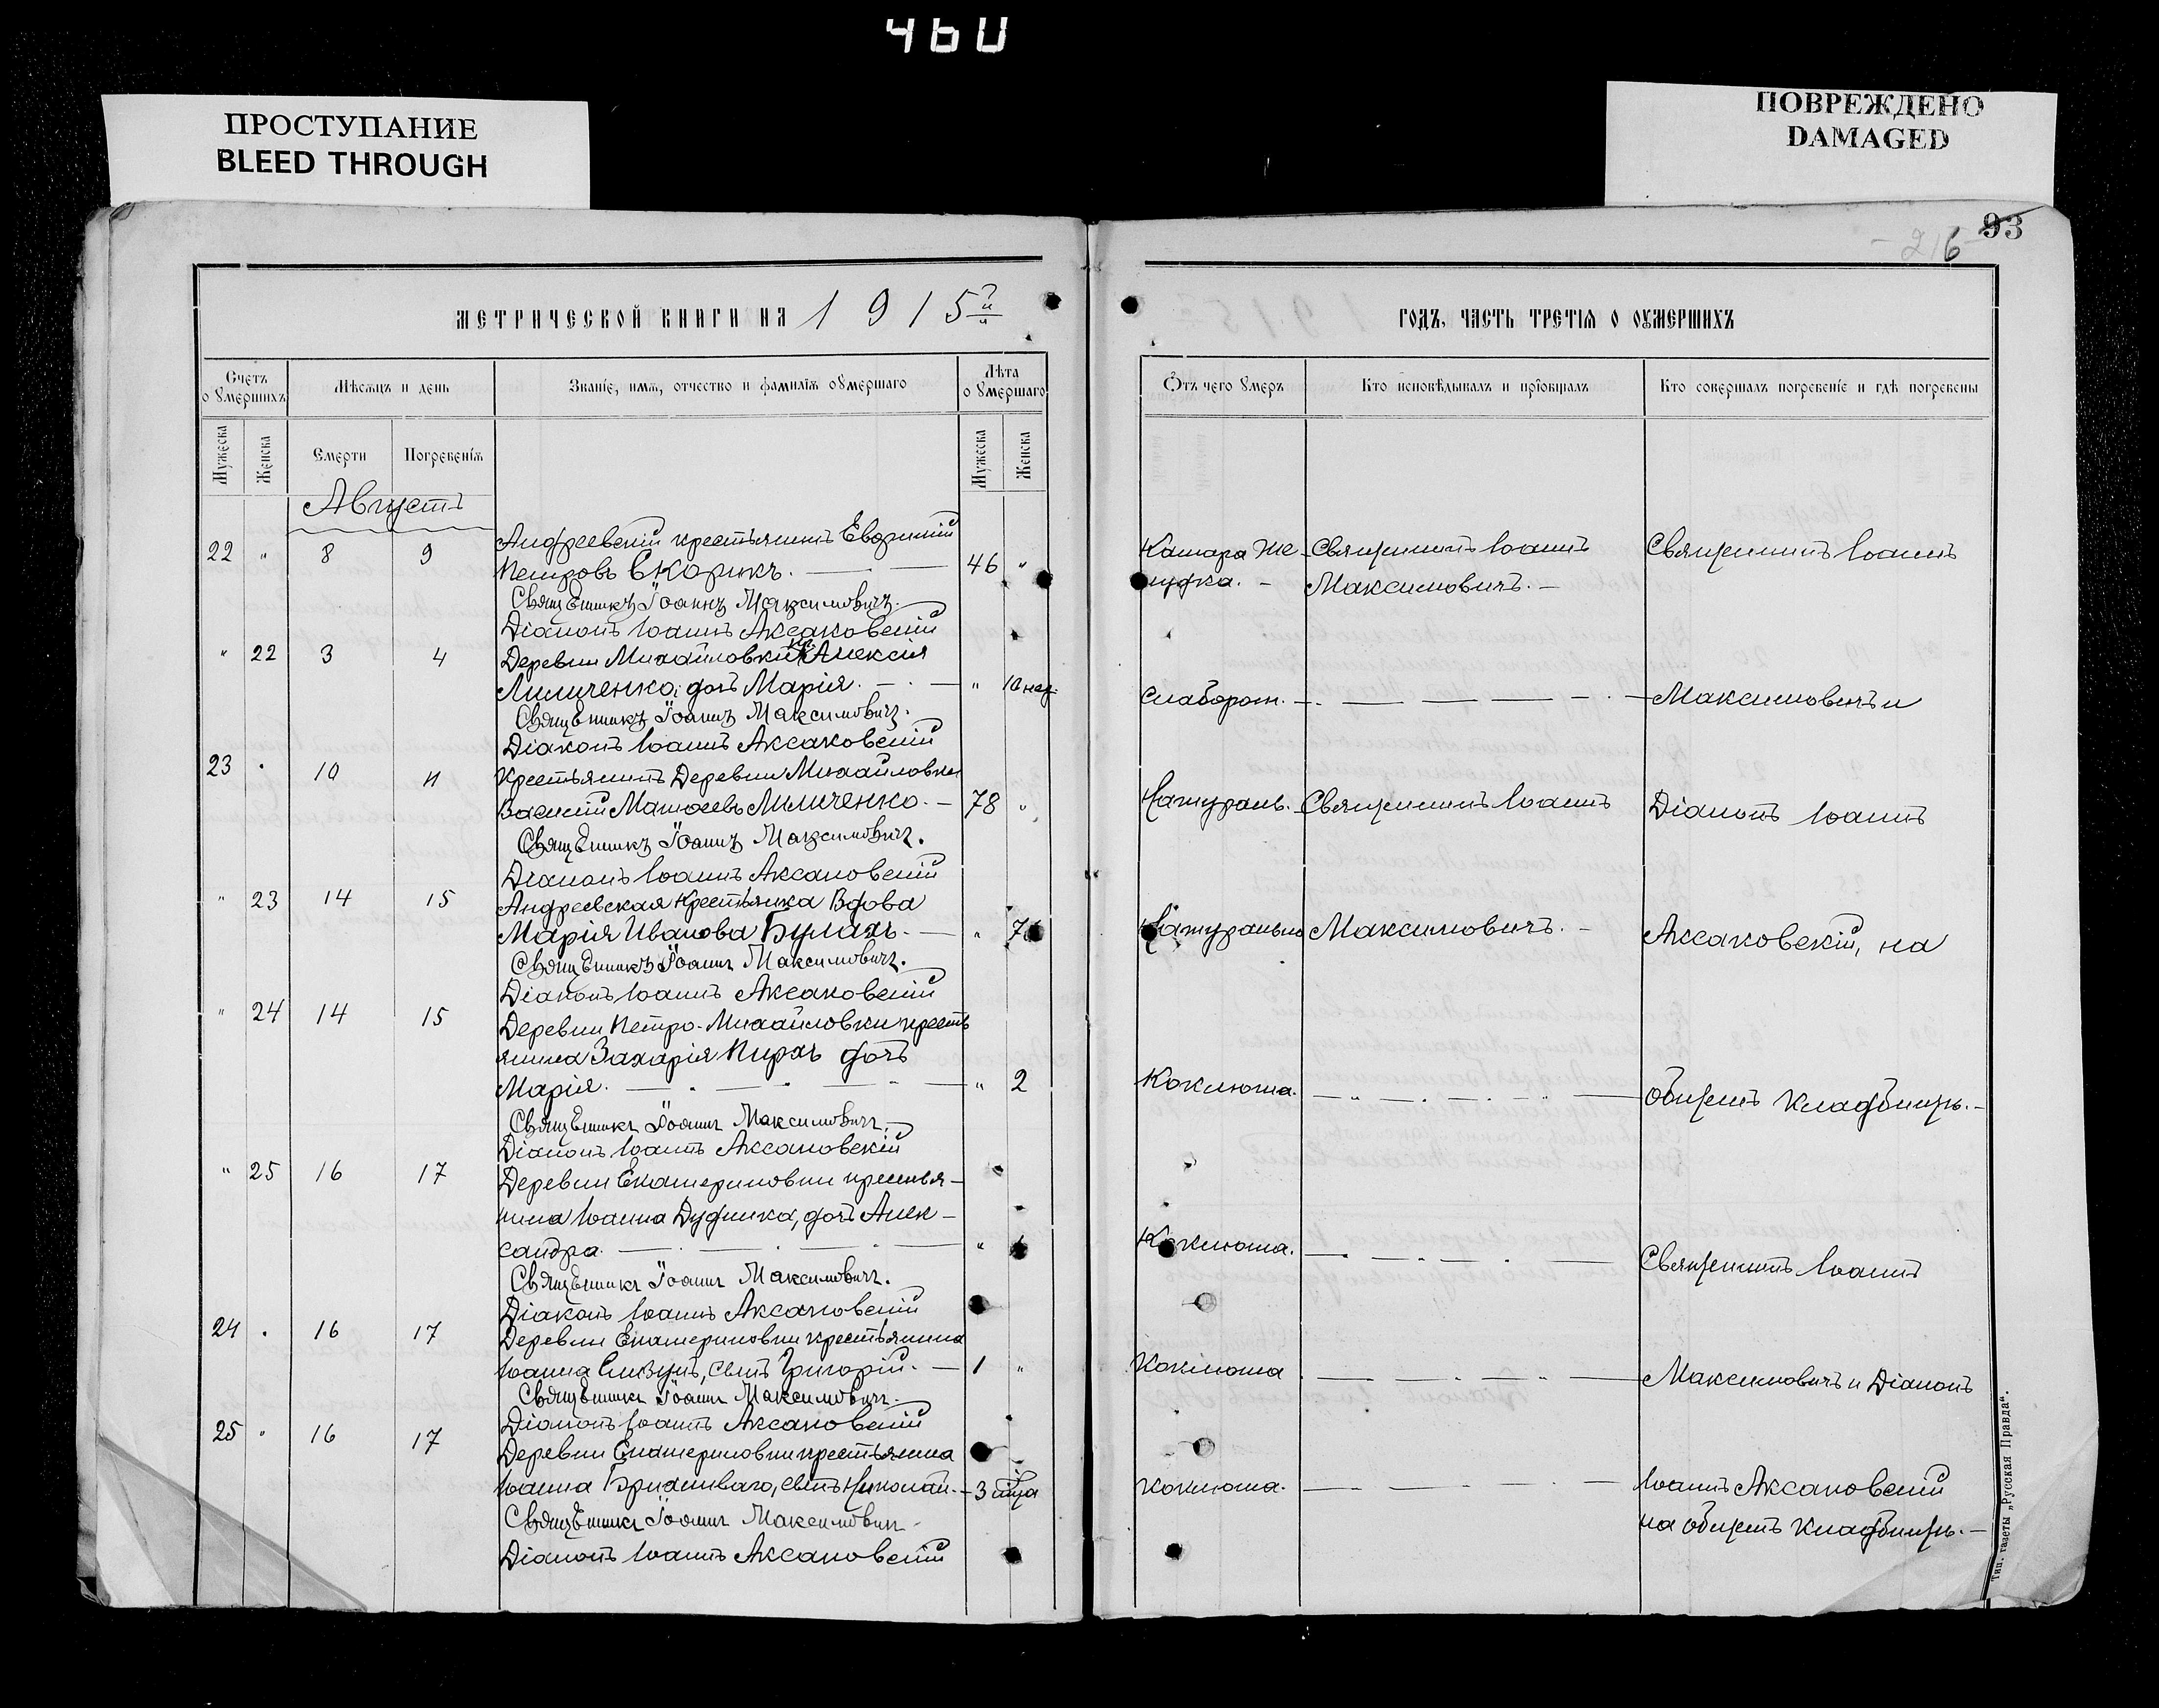 460
ПРОСТУПАНИЕ
BLEED THROUGH
ПОВРЕЖДЕНО
DAMAGED
93
216
МЕТРИЧЕСКОЙ КНИГИ НА 1915
Счетъ о Ѹмершихъ
Мѣсяцъ и день
Званіе, имя, отчество и фамилія оумершаго
Лѣта о Ѹмершаго
Мужеска
Женска
Смерти
Погребенія
Мужеска
Женска
Августъ
22 " 8 9 Андреевскій крестьянинъ
Петровъ Скорикъ. 46 "
Священникъ Іоаннъ Максимовичъ.
Діаконъ Іоаннъ Аксаковскій
" 22 3 4 Деревни Михайловки кр. Алексія
Лиличенко, дочь Марія. " нед.
Священникъ Іоаннъ Максимовичъ.
Діаконъ Іоаннъ Аксаковскій
23 " 10 11 Крестьянинъ Деревни Михайловки
Василій Матѳеевъ Лиличенко. 78 "
Священникъ Іоаннъ Максимовичъ.
Діаконъ Іоаннъ Аксаковскій
" 23 14 15 Андреевская крестьянка Вдова
Марія Иванова Булахъ. "
Священникъ Іоаннъ Максимовичъ.
Діаконъ Іоаннъ Аксаковскій
" 24 14 15 Деревни Петро-Михайловки кресть
янина Захарія Пирхъ дочь
Марія. " 2
Священникъ Іоаннъ Максимовичъ.
Діаконъ Іоаннъ Аксаковскій
" 25 16 17 Деревни Екатериновки крестья-
нина Іоанна Дудника, дочь Алек-
сандра. "
Священникъ Іоаннъ Максимовичъ.
Діаконъ Іоаннъ Аксаковскій
24 " 16 17 Деревни Екатериновки крестьянина
Іоанна Сливунъ, сынъ Григорій. 1 "
Священникъ Іоаннъ Максимовичъ.
Діаконъ Іоаннъ Аксаковскій
25 " 16 17 Деревни Екатериновки крестьянина
Іоанна сынъ Николай. 3 мца
Священникъ Іоаннъ Максимовичъ
Діаконъ Іоаннъ Аксаковскій
ГОДЪ, ЧАСТЬ ТРЕТІЯ О ОУМЕРШИХЪ
Ѿтъ чего Ѹмеръ
Кто исповѣдывалъ и прїобщалъ
Кто совершалъ погребенїе и гдѣ погребены
Катара же- Священникъ Іоаннъ Священникъ Іоаннъ
лудка. Максимовичъ.
Слаборож. Максимовичъ и
Натураль. Священникъ Іоаннъ Діаконъ Іоаннъ
Натурально Максимовичъ. Аксаковскій, на
Коклюша. общемъ кладбищѣ.
Коклюша. Священникъ Іоаннъ
Коклюша Максимовичъ и Діаконъ
Коклюша. Іоаннъ Аксаковскій
на общемъ кладбищѣ.
Тип. газеты „Русская Правда".